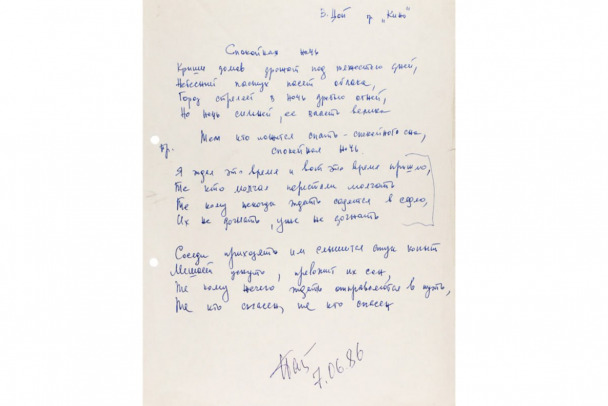 В. Цой гр. „Кино“
Спокойная ночь
Крыши домов дрожат под тяжестью дней,
Небесный пастух пасет облака,
Город стреляет в ночь дробью огней,
Но ночь сильней, ее власть велика
Тем кто ложится спать - спокойного сна,
пр.
спокойная ночь
Я ждал это время и вот это время пришло,
Те кто молчал перестали молчать
Те кому нечего ждать садятся в седло,
Их не догнать, уже не догнать
Соседи приходят им слышится стук копыт
Мешает уснуть, тревожит их сон,
Те кому нечего ждать отправляются в путь,
Те кто спасен, те кто спасен
Цой
7.06.86